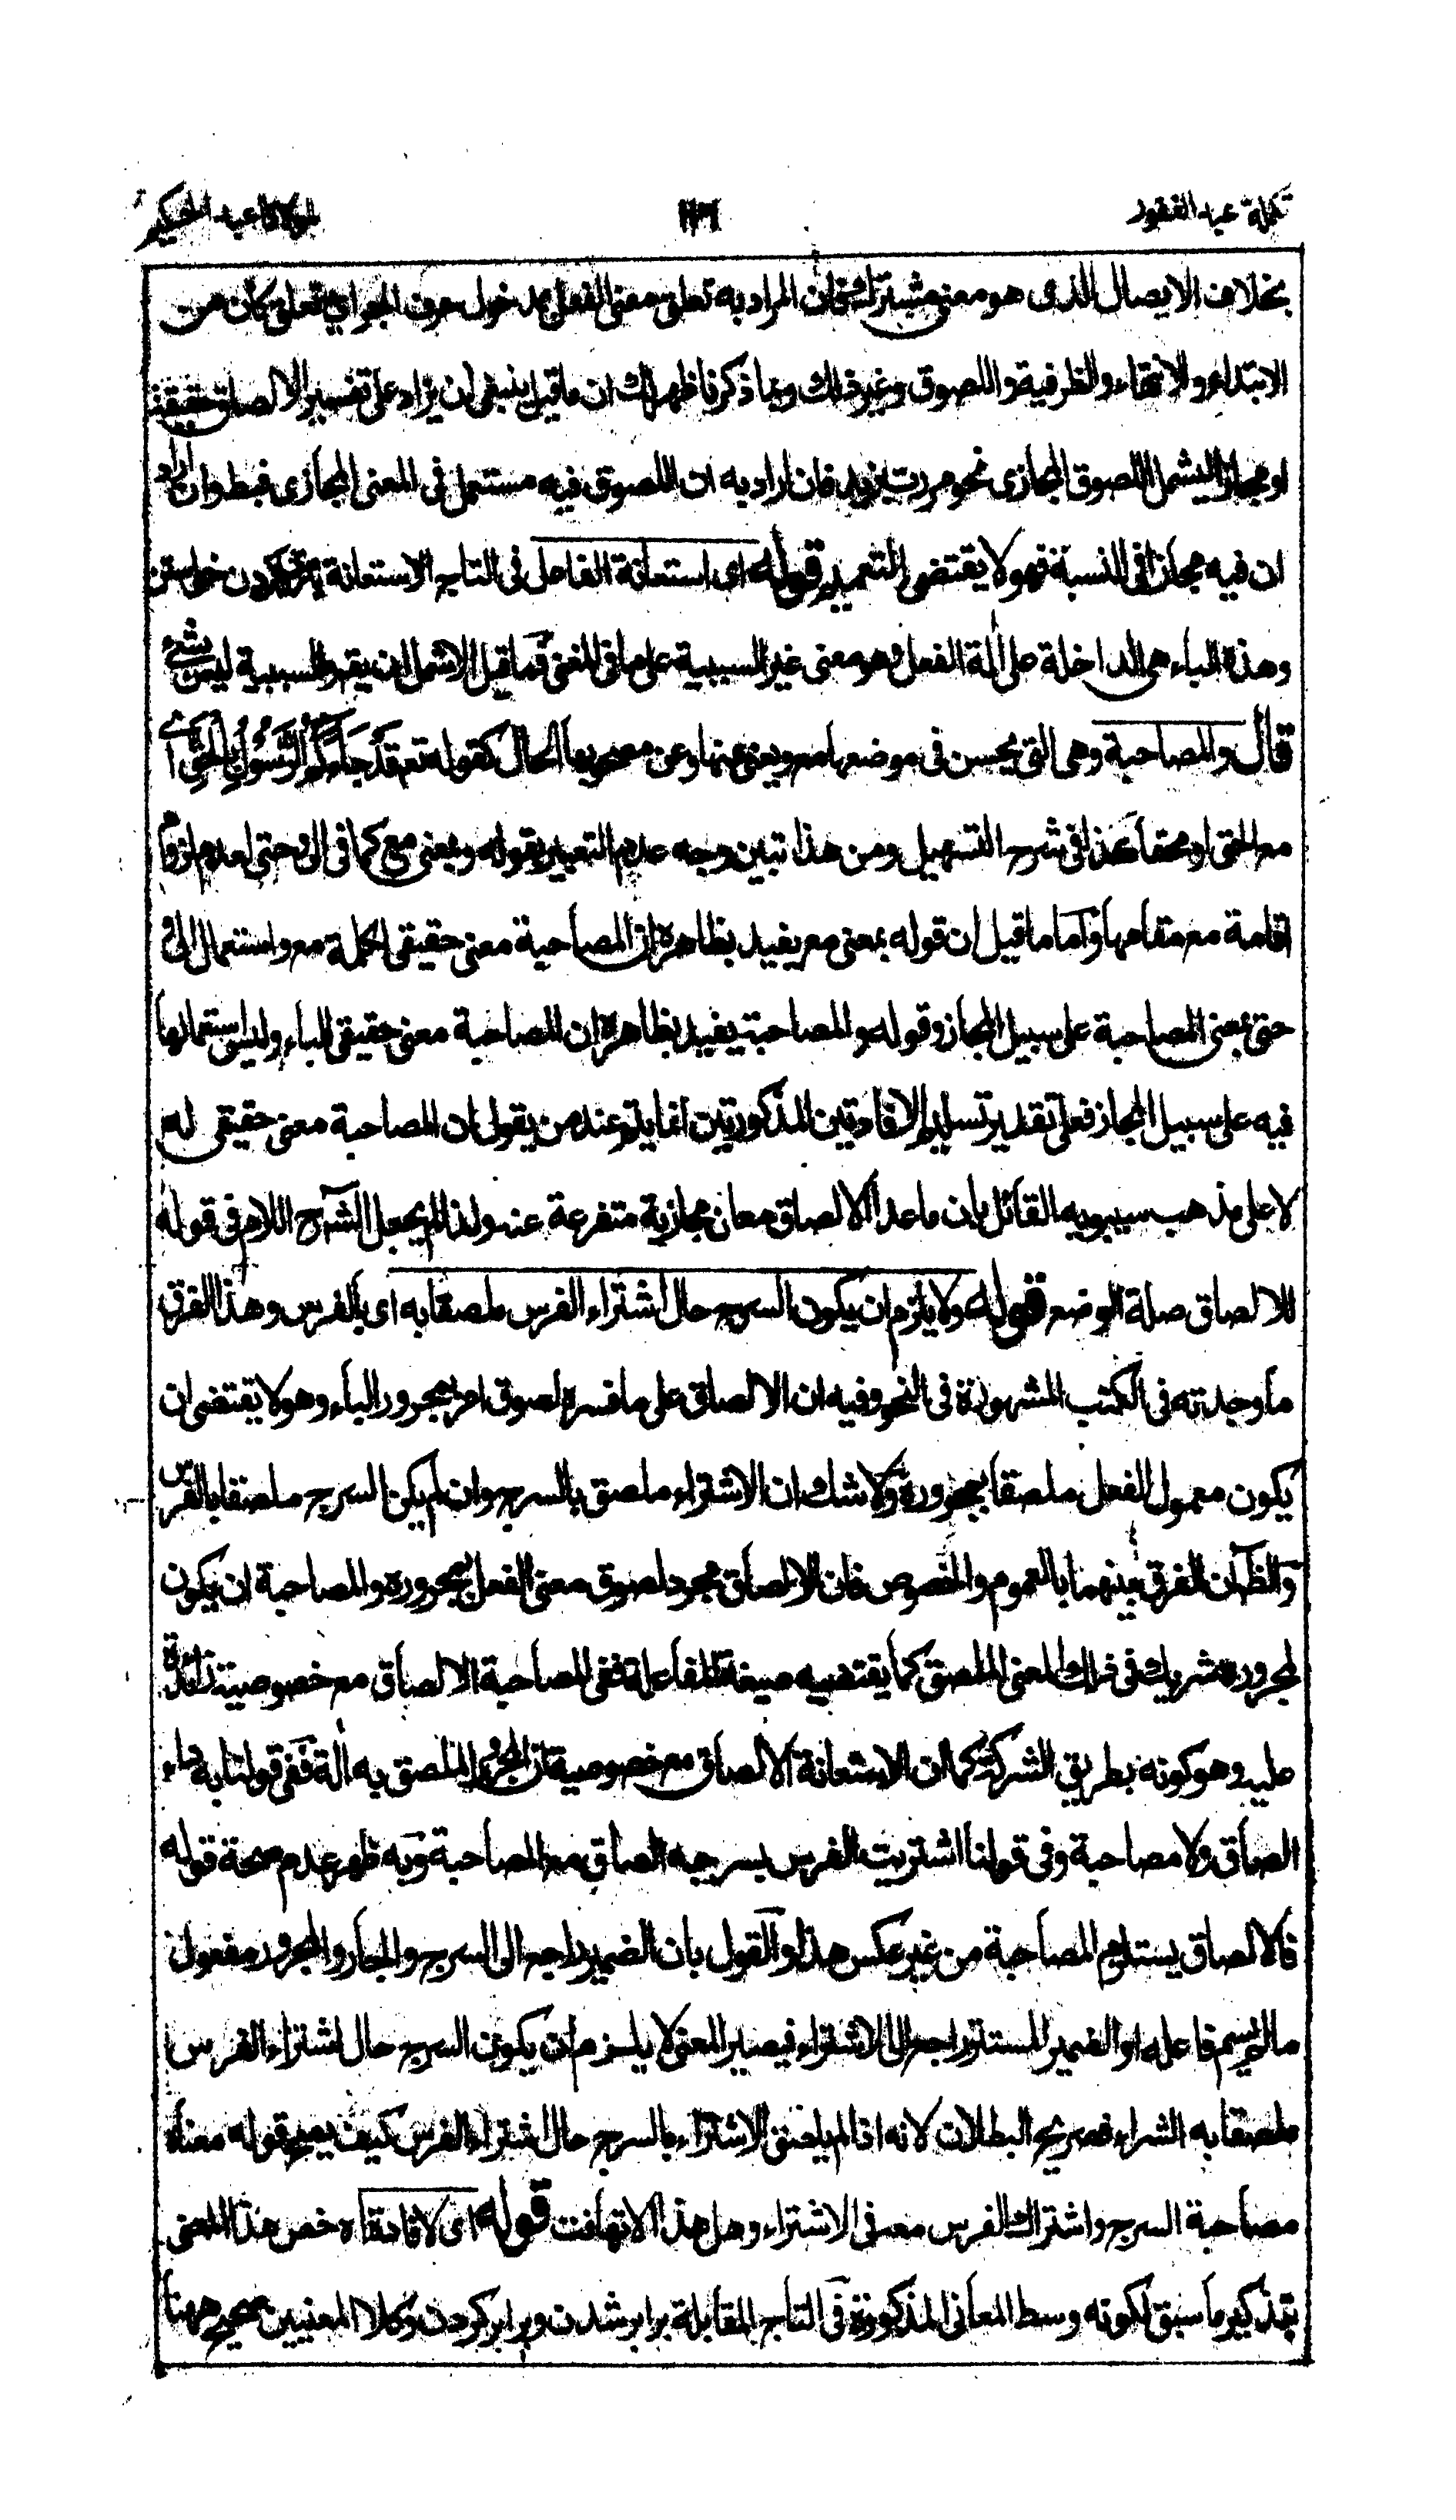 تكملة عبد الغفور
لمولانا عبد الحكيم
بخلاف الايصال الذى هو معنى مشترك فان المراد به تعلق معنى الفعل بمدخول حرف الجر اى تعلق كان من
الابتداء والانتهاء والظرفية واللصوق وغير ذلك وبما ذكرنا ظهر لك ان ما قيل ينبغى ان يزاد على تفسير الالصاق حقيقة
او مجازا ليشمل اللصوق المجازى نحو مررت بزيد فان اراد به ان اللصوق فيه مستعمل فى المعنى المجازى فبط وان اراد
ان فيه مجازا فى النسبة فهو لا يقتضى التعميم قوله اى استعانة الفاعل فى التاج الاستعانة يارى خواستن
وهذه الباء هى الداخلة على الة الفعل وهو معنى غير السببية على ما فى المغنى فما قيل الاشمل ان يقول والسببية ليس بشئ
قال والمصاحبة وهى التى يحسن فى موضعها مع ويغنى عنها وعن مصحوبها الحال كقوله تع قَدْ جَاءَكُمُ الرَّسُولُ بِالْحَقِّ اى
مع الحق او محقا كذا فى شرح التسهيل ومن هذا تبين وجه عدم التعبير بقوله وبمعنى مع كما فى الى وحتى لعدم لزوم
اقامة مع مقامها واما ما قيل ان قوله بمعنى مع يفيد بظاهره ان المصاحبة معنى حقيقى لكلمة مع واستعمال الى و
حتى بمعنى المصاحبة على سبيل المجاز وقوله والمصاحبة يفيد بظاهره ان المصاحبة معنى حقيقى للباء وليس استعمالها
فيه على سبيل المجاز فعلى تقدير تسليم الافادتين المذكورتين انما يتم عند من يقول ان المصاحبة معنى حقيقى له
لا على مذهب سيبويه القائل بان ما عدا الالصاق معان مجازية متفرعة عنه ولذا لم يجعل الشارح اللام فى قوله
للالصاق صلة الوضع قوله ولا يلزم ان يكون السرج حال اشتراء الفرس ملصقا به اى بالفرس وهذا الفرق
ما وجدته فى الكتب المشهورة فى النحو وفيه ان الالصاق على ما فسره لصوق امر بمجرور الباء وهو لا يقتضى ان
يكون معمول الفعل ملصقا بمجروره ولا شك ان الاشتراء ملصق بالسرج وان لم يكن السرج ملصقا بالفرس
والظ ان الفرق بينهما بالعموم والخصوص فان الالصاق مجرد لصوق معنى الفعل بمجروره والمصاحبة ان يكون
لمجروره شريك فى ذلك المعنى الملصق كما يقتضيه صيغة المفاعلة ففى المصاحبة الالصاق مع خصوصية زائدة
عليه وهو كونه بطريق الشركة كما ان الاستعانة الالصاق مع خصوصية ان المجرور الملصق به الة ففى قولنا به داء
الصاق ولا مصاحبة وفى قولنا اشتريت الفرس بسرجه الصاق مع المصاحبة وبه ظهر عدم صحة قوله
فالالصاق يستلزم المصاحبة من غير عكس هذا والقول بان الضمير راجع الى السرج والجار والمجرور مفعول
ما لم يسم فاعله او الضمير المستتر راجع الى الاشتراء فيصير المعنى لا يلزم ان يكون السرج حال اشتراء الفرس
ملصقا به الشراء فصريح البطلان لانه اذا لم يلصق الاشتراء بالسرج حال اشتراء الفرس كيف يصح قوله معناه
مصاحبة السرج واشتراك الفرس معه فى الاشتراء وهل هذا الا تهافت قوله اى لافادته اه خص هذا المعنى
بتذكير ما سبق لكونه وسط المعانى المذكورة فى التاج المقابلة برابر شدن وبرابر كردن وكلا المعنيين صحيح ههنا